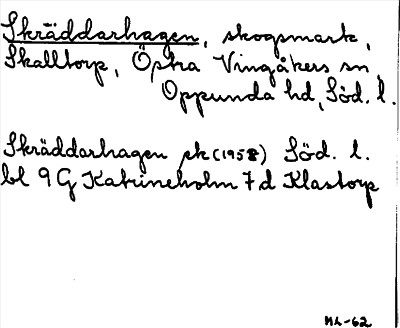 Skräddarhagen, skogsmark,
Skalltorp, Östra Vingåkers sn
Oppunda hd, Söd. l.
Skräddarhagen pk (1958) Söd. l.
bl 9 G Katrineholm 7 d Klastorp
ML-62